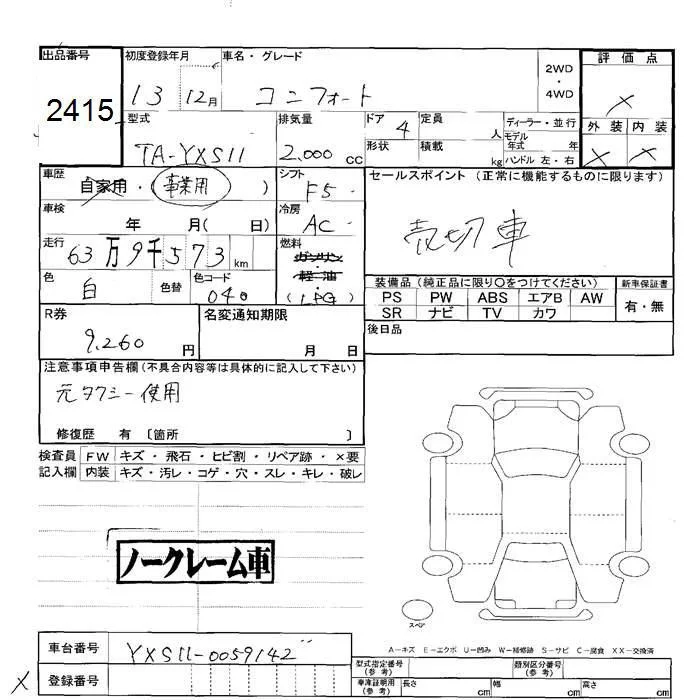 出品番号 初度登録年月 車名・グレード 2WD・4WD 評価点
2415 13 12月 コンフォート ×
型式 排気量 ドア 4 定員 人 ディーラー・並行 外装 内装
TA-YXS11 2,000 cc 形状 積載 kg モデル年式 年 ハンドル 左・右 × ×
車歴 自家用・(事業用) シフト F5 セールスポイント(正常に機能するものに限ります)
車検 年 月( 日) 冷房 AC 売切車
走行 63万9千573 km 燃料 ガソリン・軽油・(LPG)
色 白 色替 色コード 040
装備品(純正品に限り〇をつけてください) 新車保証書
PS PW ABS エアB AW 有・無
SR ナビ TV カワ
R券 9,260 円 名変通知期限 月 日 後日品
注意事項申告欄(不具合内容等は具体的に記入して下さい)
元タクシー使用
修復歴 有 〔箇所 〕
検査員 FW キズ・飛石・ヒビ割・リペア跡・×要
記入欄 内装 キズ・汚レ・コゲ・穴・スレ・キレ・破レ
ノークレーム車
スペア
A-キズ E-エクボ U-凹み W-補修跡 S-サビ C-腐食 XX-交換済
車台番号 YXS11-0059142
× 登録番号
型式指定番号(参考) 類別区分番号(参考)
車庫証明用(参考) 長さ cm 幅 cm 高さ cm